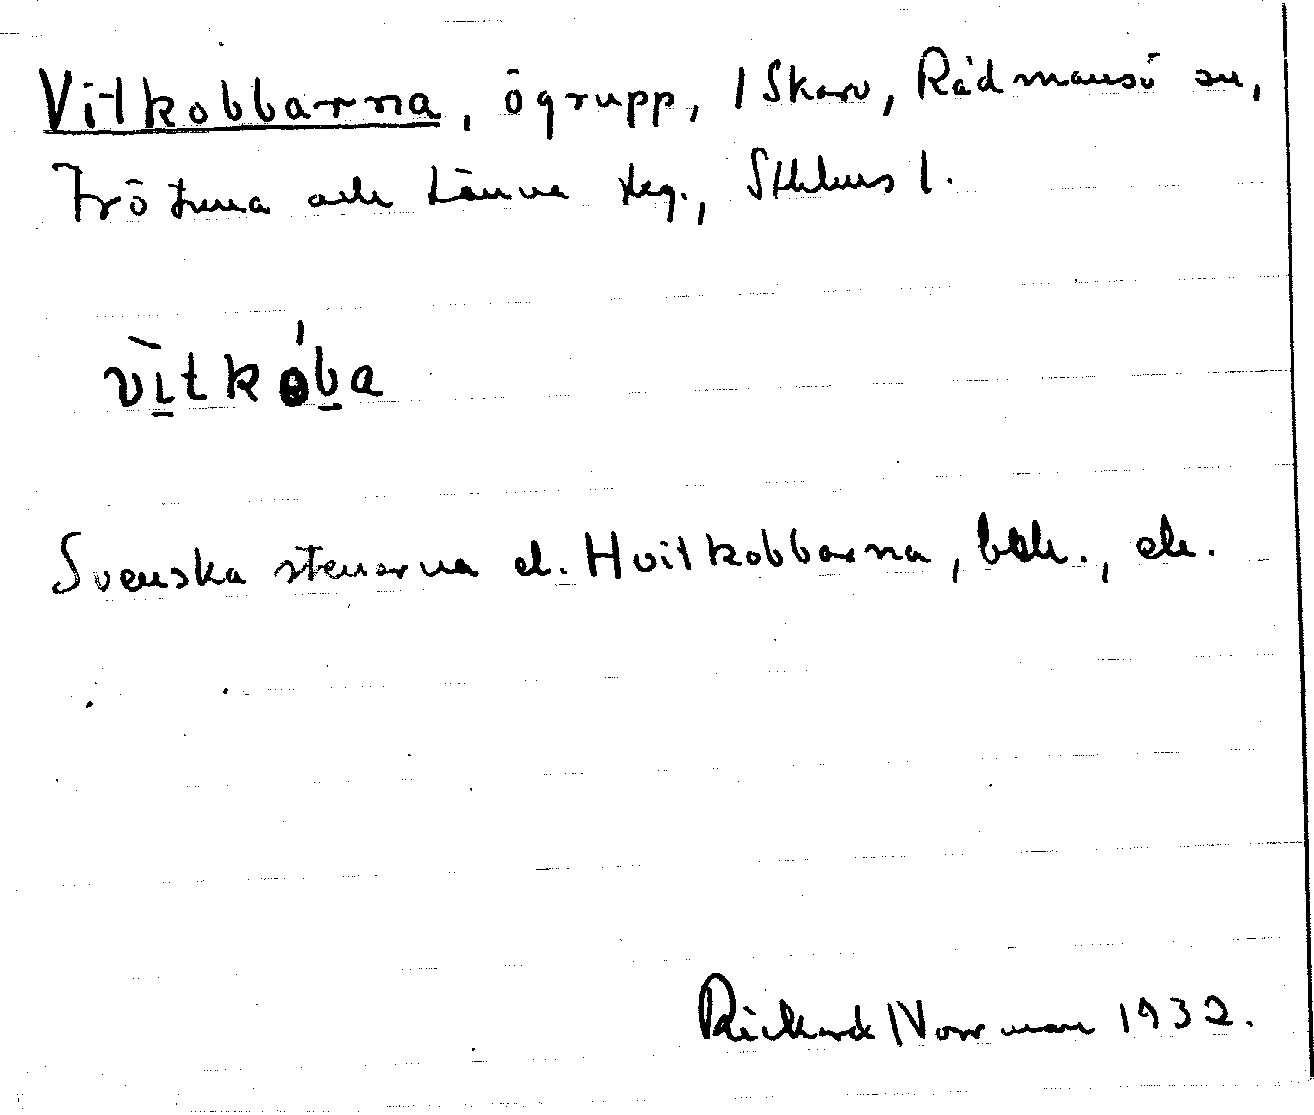 Vitkobbarna, ögrupp, I Skarv, Rådmansö sn,
Frötuna och Länna skg., Sthlms l.
vìtkóba
Svenska stenarna el. Hvitkobbarna, bebk., ek.
Rickard Norrman 1932.